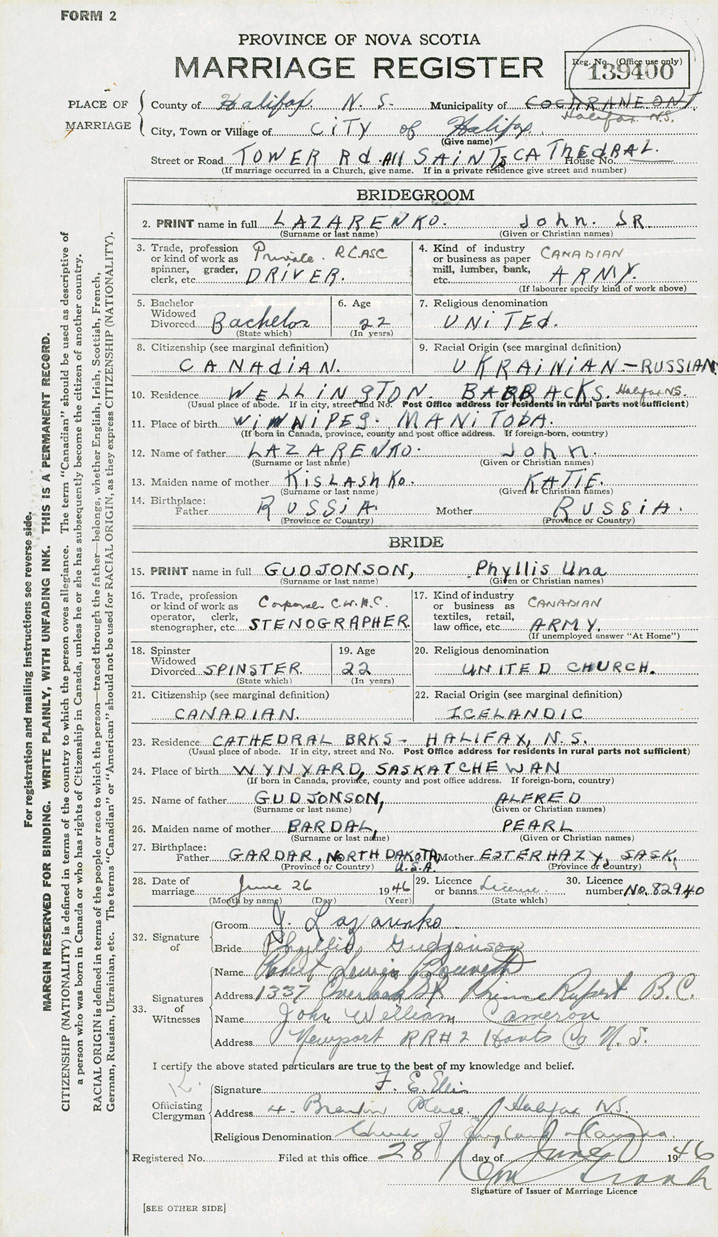 FORM 2
PROVINCE OF NOVA SCOTIA
MARRIAGE REGISTER
Reg. No. (Office use only)
139400
PLACE OF MARRIAGE
County of Halifax N. S. Municipality of COCHRANE ONT
Halifax N.S.
City, Town or Village of CITY of Halifax
(Give name)
Street or Road TOWER Rd. All SAINTS CATHEDRAL. House No.
(If marriage occurred in a Church, give name. If in a private residence give street and number)
BRIDEGROOM
2. PRINT name in full LAZARENKO. John. SR.
(Surname or last name) (Given or Christian names)
3. Trade, profession or kind of work as spinner, grader, clerk, etc. Private. RCASC DRIVER.
4. Kind of industry or business as paper mill, lumber, bank, etc. CANADIAN ARMY.
(If labourer specify kind of work above)
5. Bachelor Widowed Divorced Bachelor
(State which)
6. Age 22
(In years)
7. Religious denomination
UNITED.
8. Citizenship (see marginal definition)
CANADIAN.
9. Racial Origin (see marginal definition)
UKRAINIAN-RUSSIAN
10. Residence WELLINGTON BARRACKS. Halifax N.S.
(Usual place of abode. If in city, street and No. Post Office address for residents in rural parts not sufficient)
11. Place of birth WINNIPEG. MANITOBA.
(If born in Canada, province, county and post office address. If foreign-born, country)
12. Name of father LAZARENKO. John.
(Surname or last name) (Given or Christian names)
13. Maiden name of mother KISLASHKO. KATIE.
(Surname or last name) (Given or Christian names)
14. Birthplace: Father RUSSIA. Mother RUSSIA.
(Province or Country) (Province or Country)
BRIDE
15. PRINT name in full GUDJONSON, Phyllis Una
(Surname or last name) (Given or Christian names)
16. Trade, profession or kind of work as operator, clerk, stenographer, etc. Corporal C.W.A.C. STENOGRAPHER
17. Kind of industry or business as textiles, retail, law office, etc. CANADIAN ARMY.
(If unemployed answer "At Home")
18. Spinster Widowed Divorced SPINSTER
(State which)
19. Age 22
(In years)
20. Religious denomination
UNITED CHURCH.
21. Citizenship (see marginal definition)
CANADIAN.
22. Racial Origin (see marginal definition)
ICELANDIC
23. Residence CATHEDRAL BRKS - HALIFAX, N.S.
(Usual place of abode. If in city, street and No. Post Office address for residents in rural parts not sufficient)
24. Place of birth WYNYARD, SASKATCHEWAN
(If born in Canada, province, county and post office address. If foreign-born, country)
25. Name of father GUDJONSON, ALFRED
(Surname or last name) (Given or Christian names)
26. Maiden name of mother BARDAL, PEARL
(Surname or last name) (Given or Christian names)
27. Birthplace: Father GARDAR, NORTH DAKOTA, U.S.A. Mother ESTERHAZY, SASK.
(Province or Country) (Province or Country)
28. Date of marriage June 26 1946
(Month by name) (Day) (Year)
29. Licence or banns License
(State which)
30. Licence number No. 82940
32. Signature of
Groom J. Lazarenko
Bride Phyllis Gudjonson
33. Signatures of Witnesses
Name Robert Lewis
Address 1337 Overlook St Prince Rupert B.C.
Name John William Cameron
Address Newport RR#2 Hants Co N.S.
I certify the above stated particulars are true to the best of my knowledge and belief.
Officiating Clergyman
Signature F. E. Ellis
Address 4. Place. Halifax N.S.
Religious Denomination Church of England Canada.
Registered No. Filed at this office 28 day of June 1946
Signature of Issuer of Marriage Licence
[SEE OTHER SIDE]
For registration and mailing instructions see reverse side.
MARGIN RESERVED FOR BINDING. WRITE PLAINLY, WITH UNFADING INK. THIS IS A PERMANENT RECORD.
CITIZENSHIP (NATIONALITY) is defined in terms of the country to which the person owes allegiance. The term "Canadian" should be used as descriptive of
a person who was born in Canada or who has rights of Citizenship in Canada, unless he or she has subsequently become the citizen of another country.
RACIAL ORIGIN is defined in terms of the people or race to which the person—traced through the father—belongs, whether English, Irish, Scottish, French,
German, Russian, Ukrainian, etc. The terms "Canadian" or "American" should not be used for RACIAL ORIGIN, as they express CITIZENSHIP (NATIONALITY).